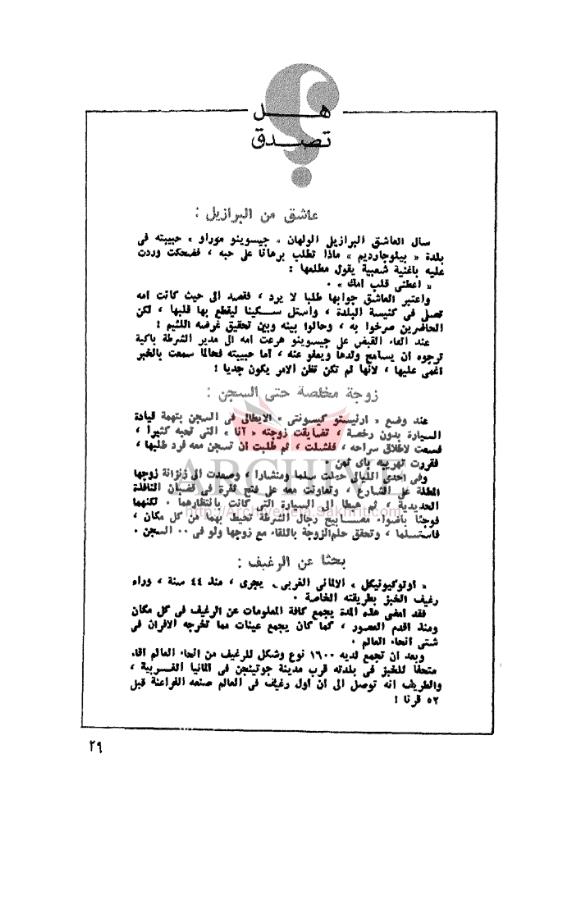 هــــل
تصــدق
عاشق من البرازيل :
سال العاشق البرازيلى الولهان « جيسوينو موراو » حبيبته فى
بلدة « بيلوجارديم » ماذا تطلب برهانا على حبه ، فضحكت وردت
عليه باغنية شعبية يقول مطلعها :
« اعطنى قلب امك » .
واعتبر العاشق جوابها طلبا لا يرد ، فقصد الى حيث كانت امه
تصلى فى كنيسة البلدة ، وأستل سـكينا ليقطع بها قلبها ، لكن
الحاضرين صرخوا به ، وحالوا بينه وبين تحقيق غرضه اللئيم !
عند القاء القبض على جيسوينو هرعت امه الى مدير الشرطة باكية
ترجوه ان يسامح ولدها ويعفو عنه ، اما حبيبته فحالما سمعت بالخبر
اغمى عليها ، لأنها لم تكن تظن الامر يكون جديا !
زوجة مخلصة حتى السجن :
عند وضع « ارنيستو كيسونتى » الايطالى فى السجن بتهمة قيادة
السيارة بدون رخصة ، تضايقت زوجته « انا » التى تحبه كثيرا ،
فسعت لاطلاق سراحه ، ففشلت ، ثم طلبت ان تسجن معه فرد طلبها ،
فقررت تهريبه باى ثمن .
وفى احدى الليالى حملت سلما ومنشارا ، وصعدت الى زنزانة زوجها
المطلة على الشارع ، وتعاونت معه على فتح ثغرة فى قضبان النافذة
الحديدية ، ثم هبطا الى السيارة التى كانت بانتظارهما . لكنهما
فوجئا باضواء مصـابيح رجال الشرطة تحيط بهما من كل مكان ،
فاستسلما ، وتحقق حلم الزوجة باللقاء مع زوجها ولو فى ٠٠ السجن .
ARCHIVE
http://archivebeta.Sakhrit.com
بحثا عن الرغيف :
« اوتوكيونيكل » الالمانى الغربى ـ يجرى ، منذ ٤٤ سنة ، وراء
رغيف الخبز بطريقته الخاصة .
فقد امضى هذه المدة يجمع كافة المعلومات عن الرغيف فى كل مكان
ومنذ اقدم العصور ، كما كان يجمع عينات مما تخرجه الافران فى
شتى انحاء العالم .
وبعد ان تجمع لديه ١٦٠٠ نوع وشكل للرغيف من انحاء العالم اقام
متحفا للخبز فى بلدته قرب مدينة جوتينجن فى المانيا الغـربية ،
والطريف انه توصل الى ان اول رغيف فى العالم صنعه الفراعنة قبل
٥٢ قرنا !
٢٩